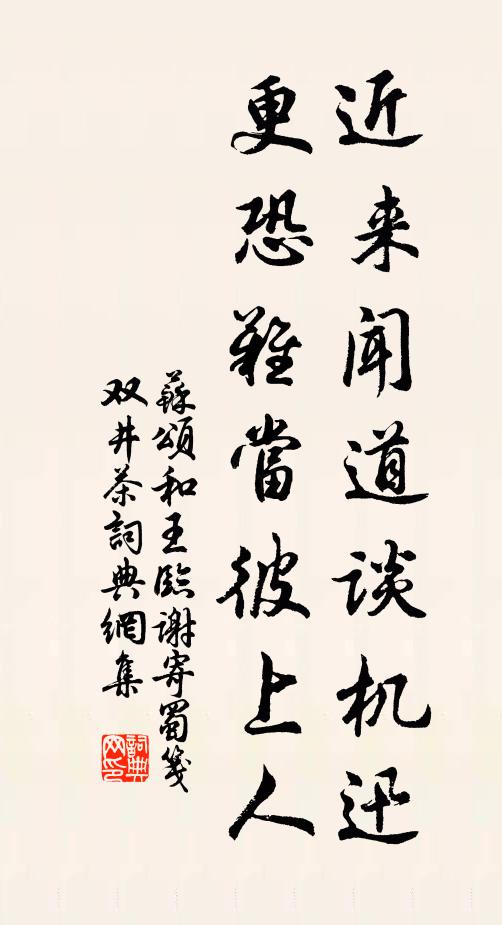 近来闻道谈机迅
更恐難當彼上人
蘇頌和王臨谢寄蜀笺
双井茶詞典網集
詞典网印